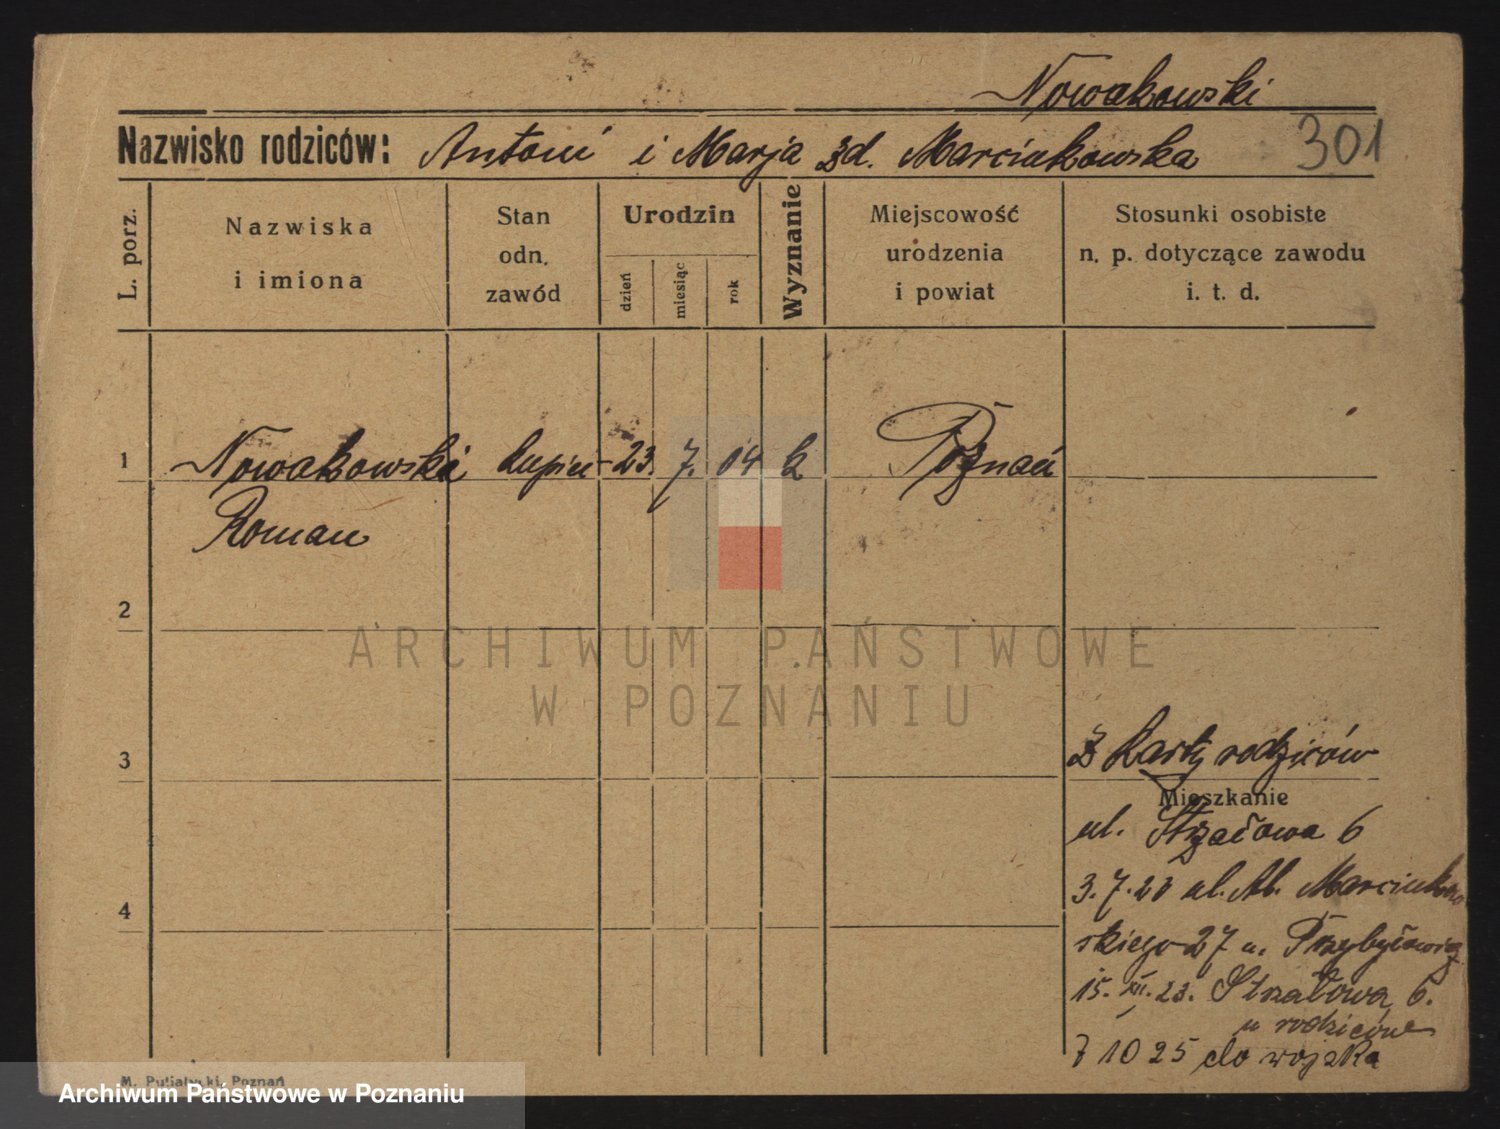 Nowakowski
Nazwisko rodziców: Antoni i Marja zd. Marciukowska
301
L. porz.
Nazwiska
i imiona
Stan
odn.
zawód
Urodzin
dzień
miesiąc
rok
Wyznanie
Miejscowość
urodzenia
i powiat
Stosunki osobiste
n. p. dotyczące zawodu
i. t. d.
1
Nowakowski kupiec 23. 7. 04 k Poznań
Roman
2
ARCHIWUM PAŃSTWOWE
W POZNANIU
3
Z karty rodziców
Mieszkanie
ul. Strzałowa 6
3.7.23 ul. Al. Marcinkow
4
skiego 27 u. Przybyłowicz
15. XII. 23. Strzałowa 6.
u rodziców
7 10 25 do wojska
M. Putiatycki, Poznań
Archiwum Państwowe w Poznaniu